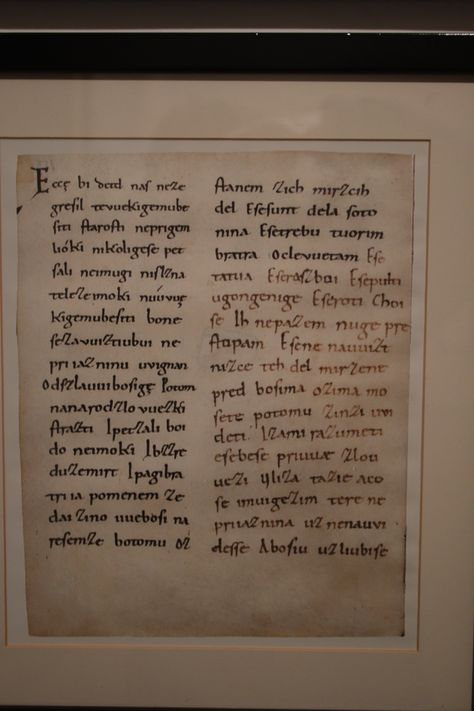 Eccę bi detd naſ neze
greſil tevuekigemube
ſiti ſtaroſti neprigem
lióki nikoligeſe pet
ſali neimugi niſlzna
telezeimoki nuúvuę
kigemubeſiti bone
ſezavuiztiubui ne
priiazninu uvignan
Odſzlauuibosigę Potom
nanarodzlovuezki
ſtrazti Ipetzali boi
do neimoki Ibzzre
duzemirt Ipagibra
triia pomenem ze
dai zino uuebosi na
resemze botomu oz
ſtanem zich mirzcih
del Eſeſunt dela ſoto
nina Eſetrebu tuorim
bratra Oclevuetam Eſe
tatua Eſerazboi Eſepulti
ugongenige Eſeroti Choi
ſe Ih nepazem nuge pre
ſtopam Eſene nauuizt
nizce teh del mirzene
pred bosima ozima mo
ſete potomu zinzi uvi
deti Izami razumeti
eſebeſe priuuae zlou
uezi Iliza tazie aco
ſe imuigezim tere ne
priiaznina uznenauvi
deſſe Aboſiu uzliubiſe